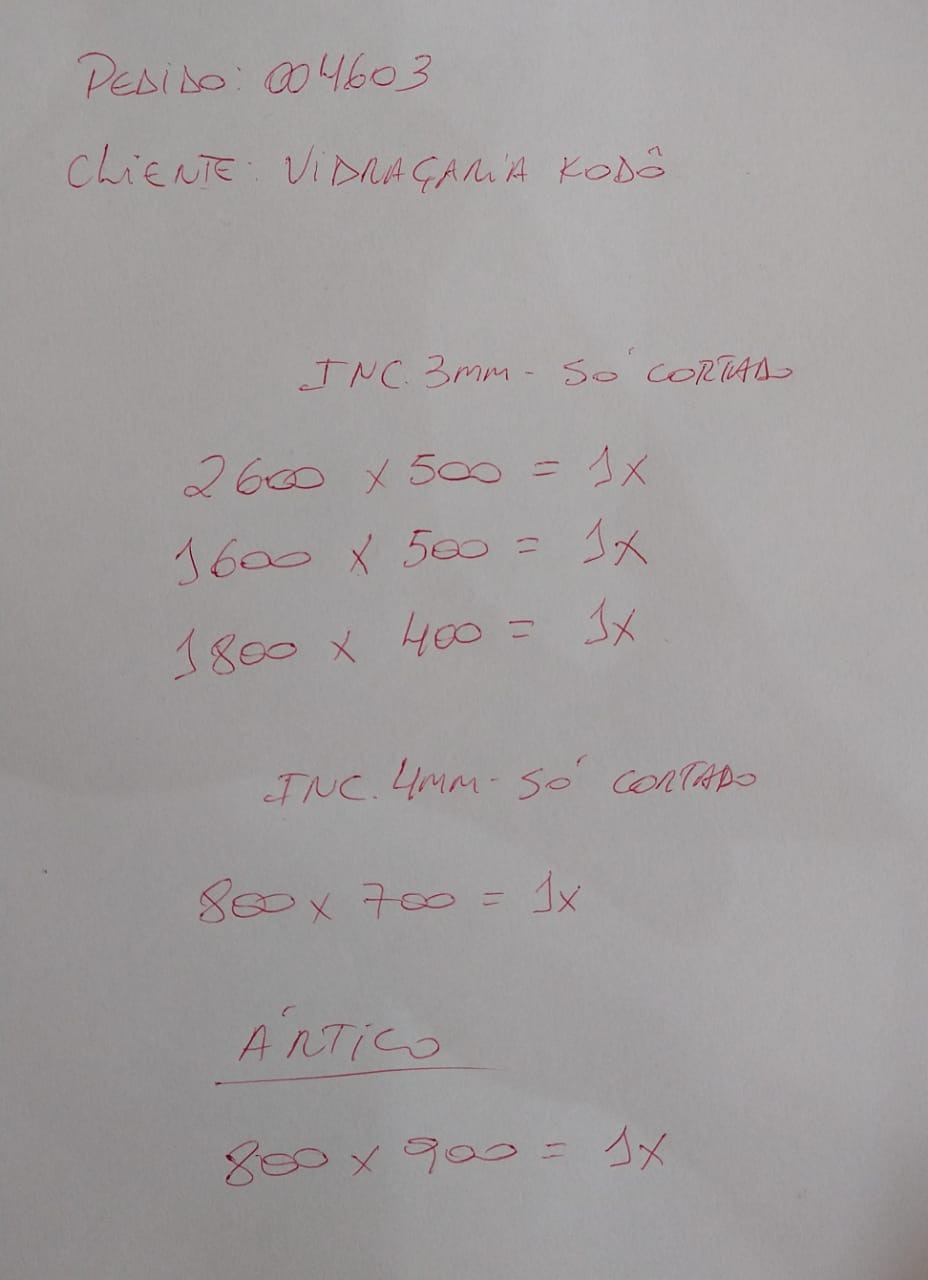 PEDIDO: 004603
CLIENTE: VIDRAÇARIA KODÔ
INC. 3mm - SÓ CORTADO
2600 x 500 = 1x
1600 x 500 = 1x
1800 x 400 = 1x
INC. 4MM - SÓ CORTADO
800 x 700 = 1x
ÁRTICO
800 x 900 = 1x